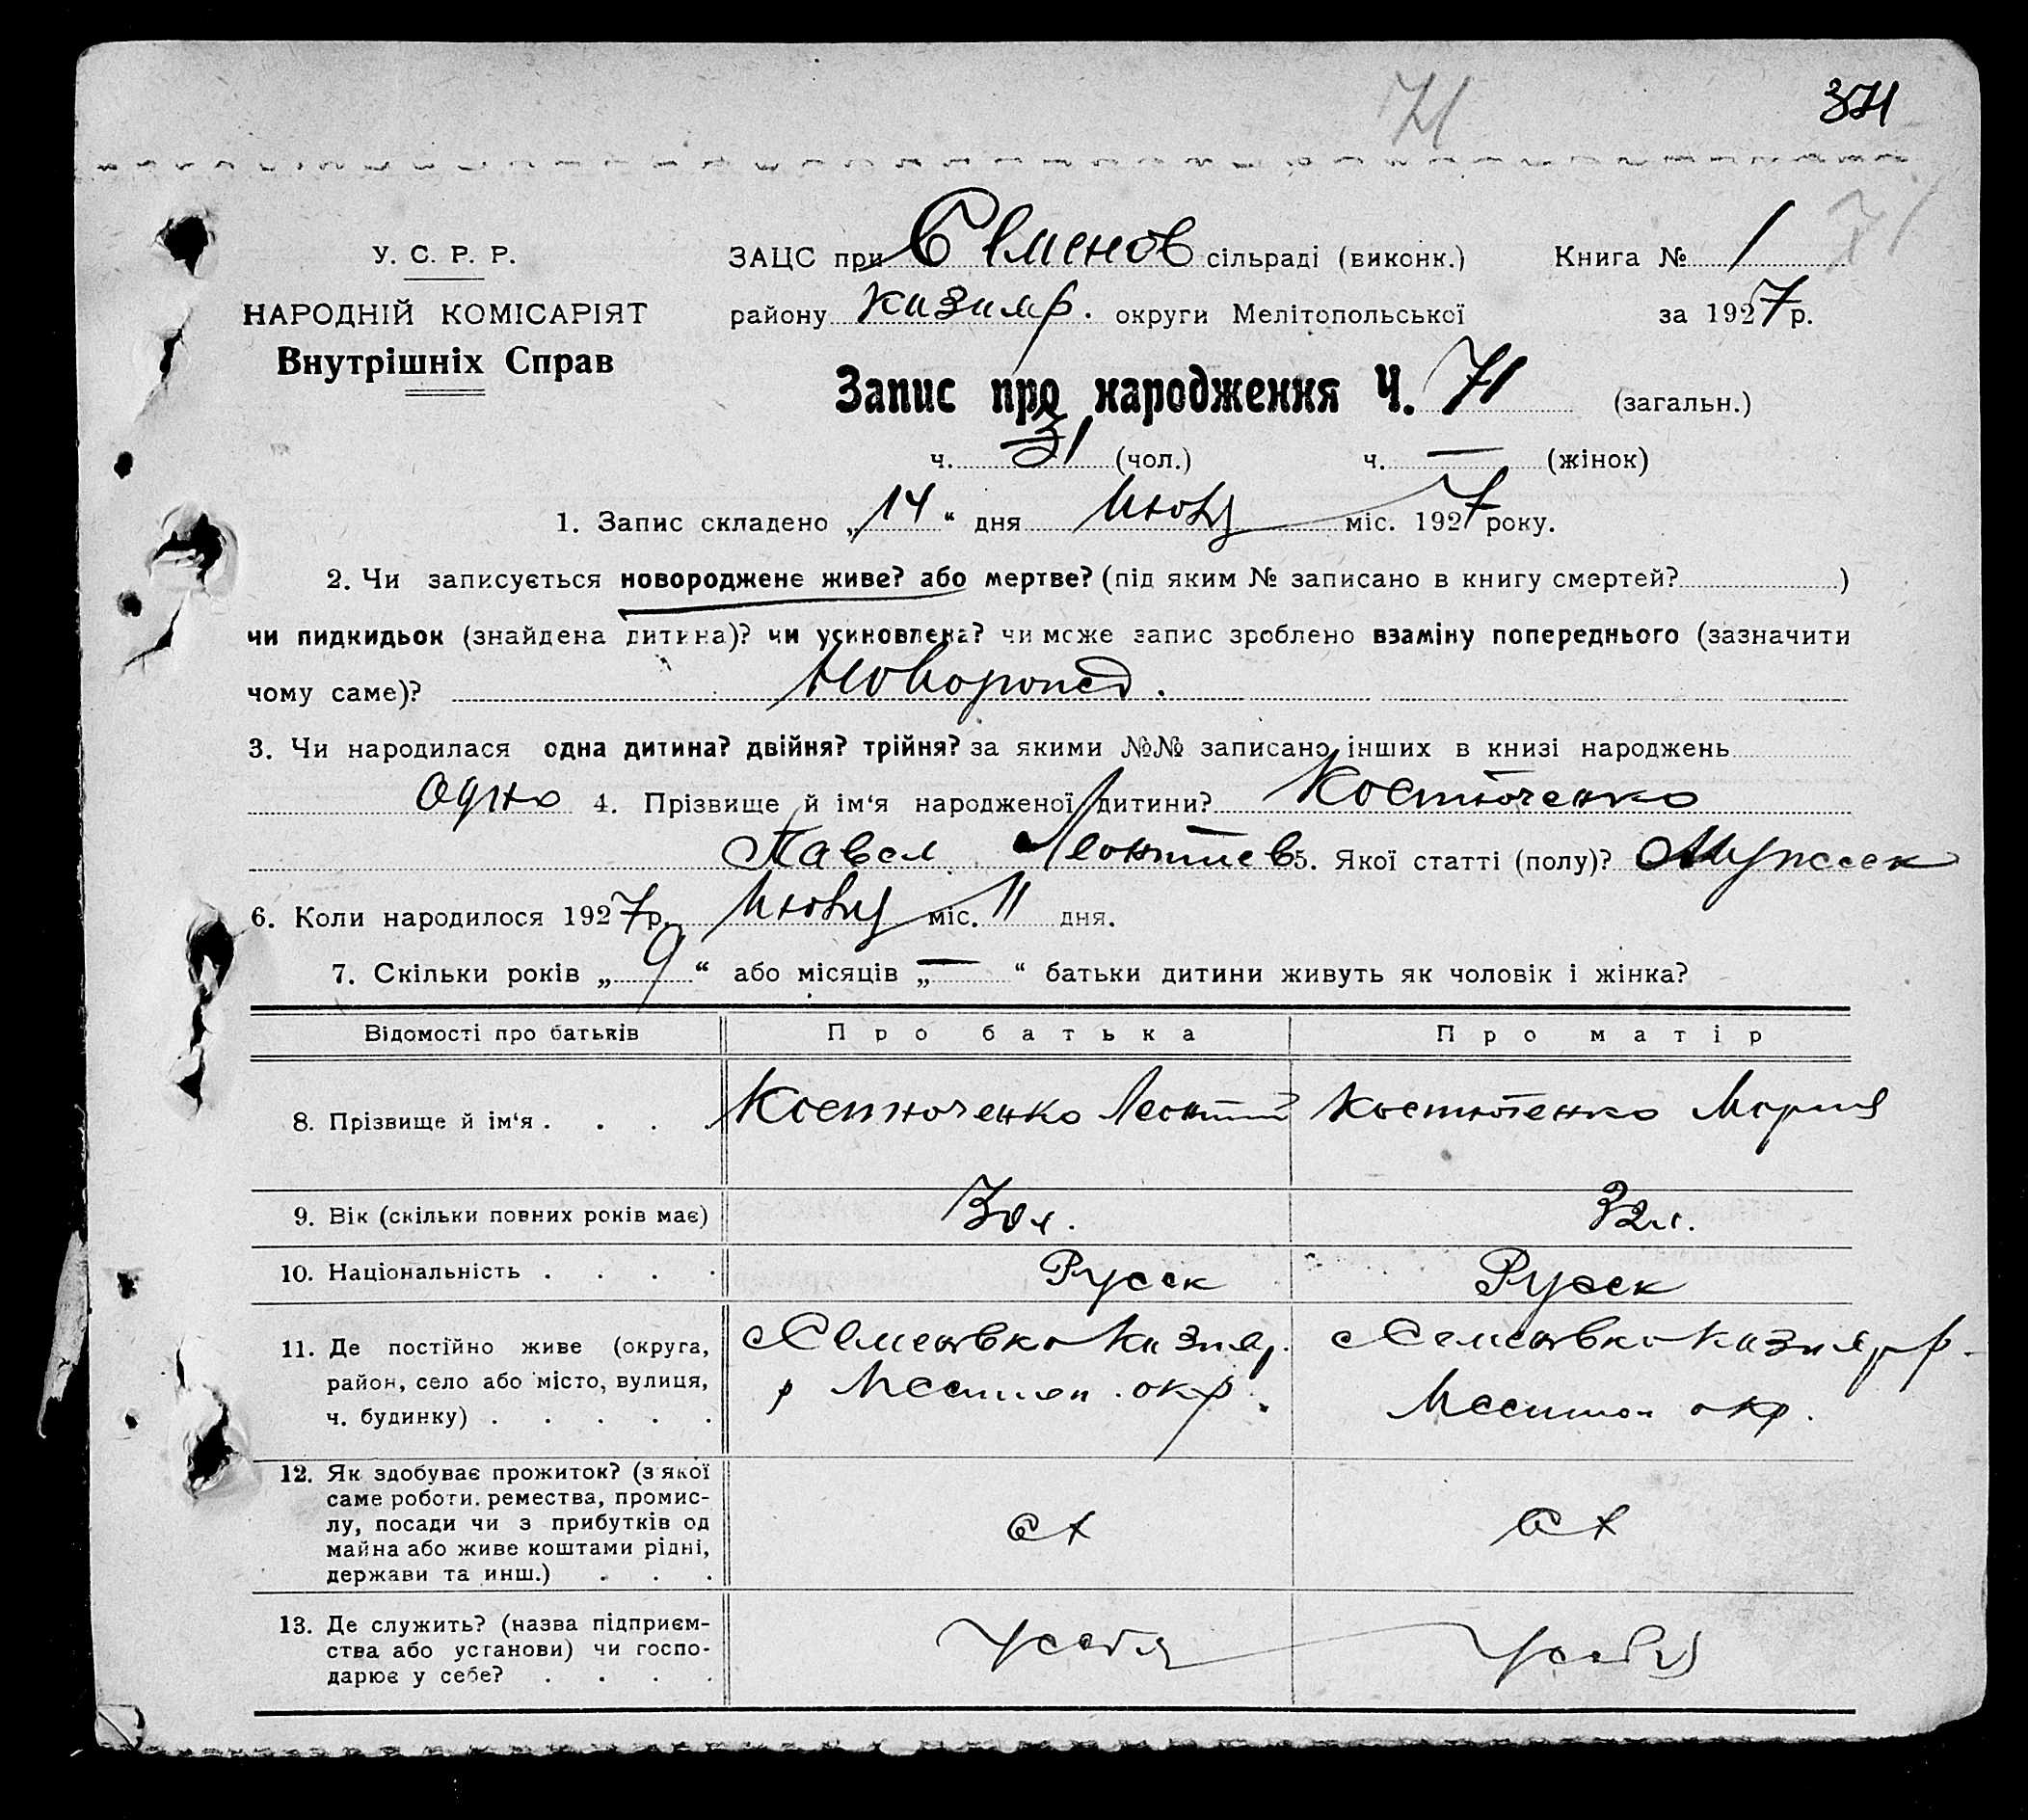 71
371
71
У. С. Р. Р.
НАРОДНІЙ КОМІСАРІЯТ
Внутрішніх Справ
ЗАЦС при Семенов сільраді (виконк.) Книга № 1
району Кизияр. округи Мелітопольської за 1927 р.
Запис про народження Ч. 71 (загальн.)
ч. 31 (чол.) ч. — (жінок)
1. Запис складено „14“ дня Июня міс. 1927 року.
2. Чи записується новороджене живе? або мертве? (під яким № записано в книгу смертей? )
чи пидкидьок (знайдена дитина)? чи усиновлена? чи може запис зроблено взаміну попереднього (зазначити
чому саме)? Новорожд.
3. Чи народилася одна дитина? двійня? трійня? за якими №№ записано інших в книзі народжень
Одно 4. Прізвище й ім‘я народженої дитини? Костюченко
Павел Леонтиев 5. Якої статті (полу)? Мужсек
6. Коли народилося 1927 р. Июня міс. 11 дня.
7. Скільки років „9“ або місяців „—“ батьки дитини живуть як чоловік і жінка?
Відомості про батьків Про батька Про матір
8. Прізвище й ім‘я . . . . Костюченко Леонтий Костюченко Мария
9. Вік (скільки повних років має) 30 л. 32 л.
10. Національність . . . . Русск Русск
11. Де постійно живе (округа,
район, село або місто, вулиця,
ч. будинку) . . . . .
Семеновка Кизияр.
р Мелитоп. окр.
Семеновка Кизияр р-
Мелитоп окр.
12. Як здобуває прожиток? (з якої
саме роботи, ремества, промис-
лу, посади чи з прибутків од
майна або живе коштами рідні,
держави та инш.) . . .
сх сх
13. Де служить? (назва підприєм-
ства або установи) чи госпо-
дарює у себе? . . . .
У себя У себя